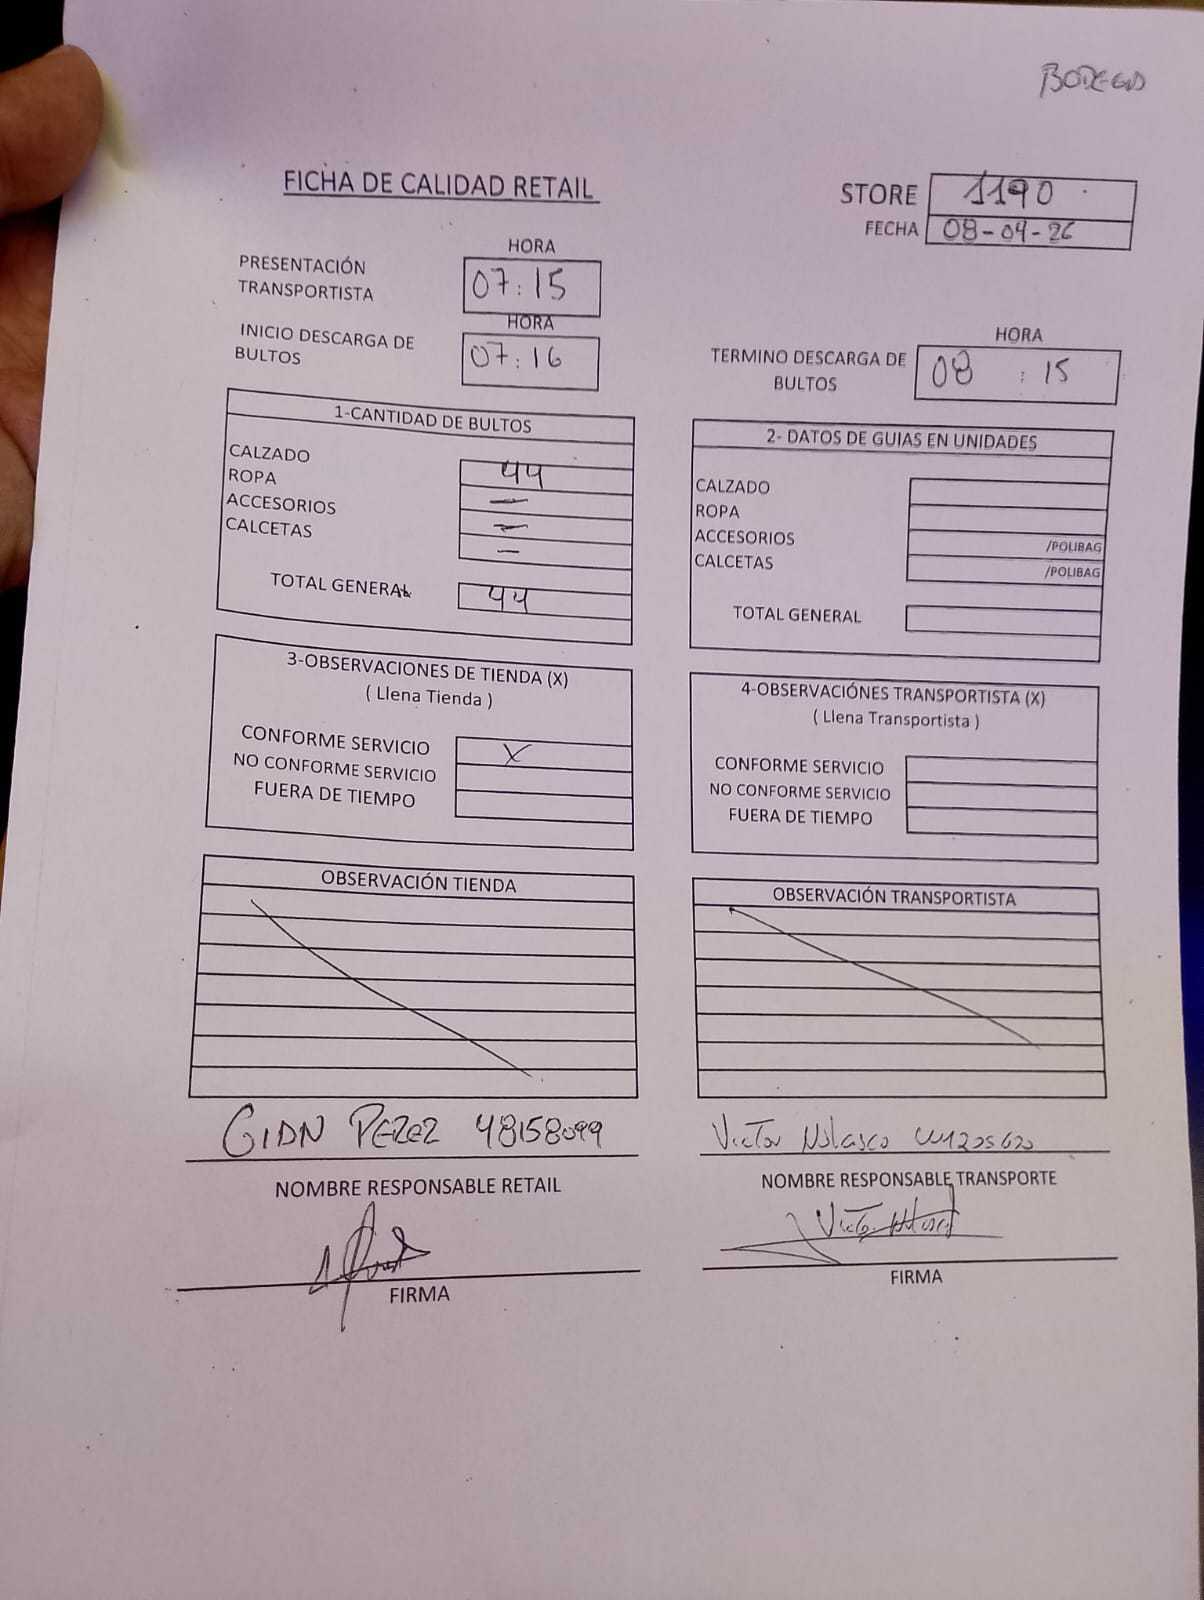 BODEGA
FICHA DE CALIDAD RETAIL
STORE 1190
FECHA 08-04-26
HORA
PRESENTACIÓN TRANSPORTISTA 07:15
HORA
INICIO DESCARGA DE BULTOS 07:16
HORA
TERMINO DESCARGA DE BULTOS 08:15
1-CANTIDAD DE BULTOS
CALZADO 44
ROPA —
ACCESORIOS —
CALCETAS —
TOTAL GENERAL 44
2- DATOS DE GUIAS EN UNIDADES
CALZADO
ROPA
ACCESORIOS /POLIBAG
CALCETAS /POLIBAG
TOTAL GENERAL
3-OBSERVACIONES DE TIENDA (X)
( Llena Tienda )
CONFORME SERVICIO X
NO CONFORME SERVICIO
FUERA DE TIEMPO
4-OBSERVACIÓNES TRANSPORTISTA (X)
( Llena Transportista )
CONFORME SERVICIO
NO CONFORME SERVICIO
FUERA DE TIEMPO
OBSERVACIÓN TIENDA
OBSERVACIÓN TRANSPORTISTA
PEREZ 48158099
NOMBRE RESPONSABLE RETAIL
FIRMA
Victor Nolasco
NOMBRE RESPONSABLE TRANSPORTE
Victor Nolasco
FIRMA